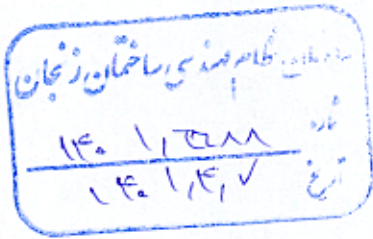 سازمان نظام مهندسی ساختمان زنجان
شماره ۱۴۰۱,۲۲۸۸
تاریخ ۱۴۰۱,۴,۷